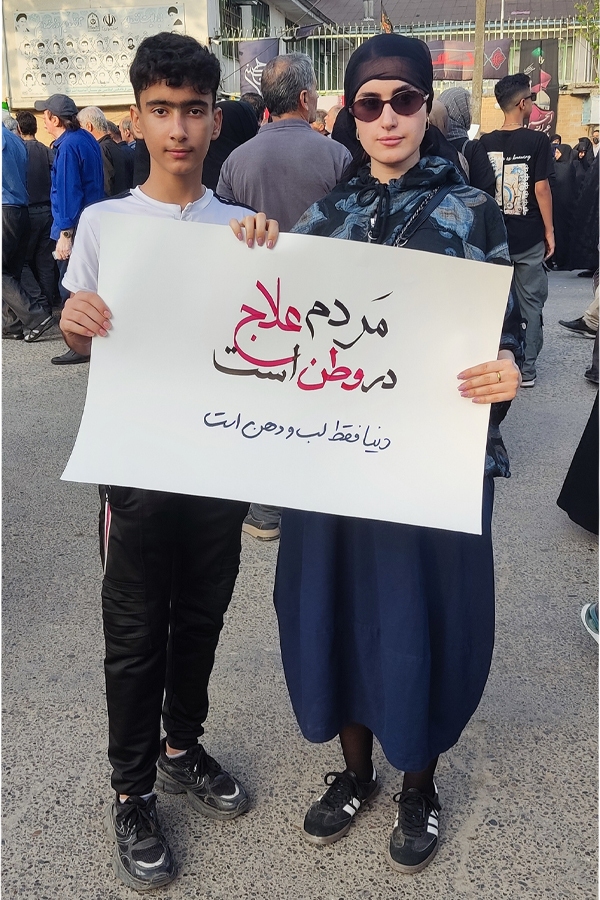 مَردم علاج
در وطن است
دنیا فقط لب و دهن است